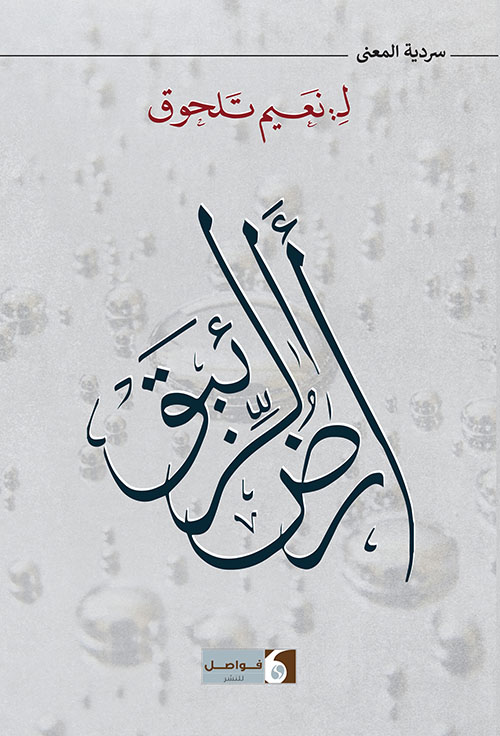 سردية المعنى
لِـ: نَعَيم تَلحوق
أَرضُ الزِّئبَق
فواصل
للنشر